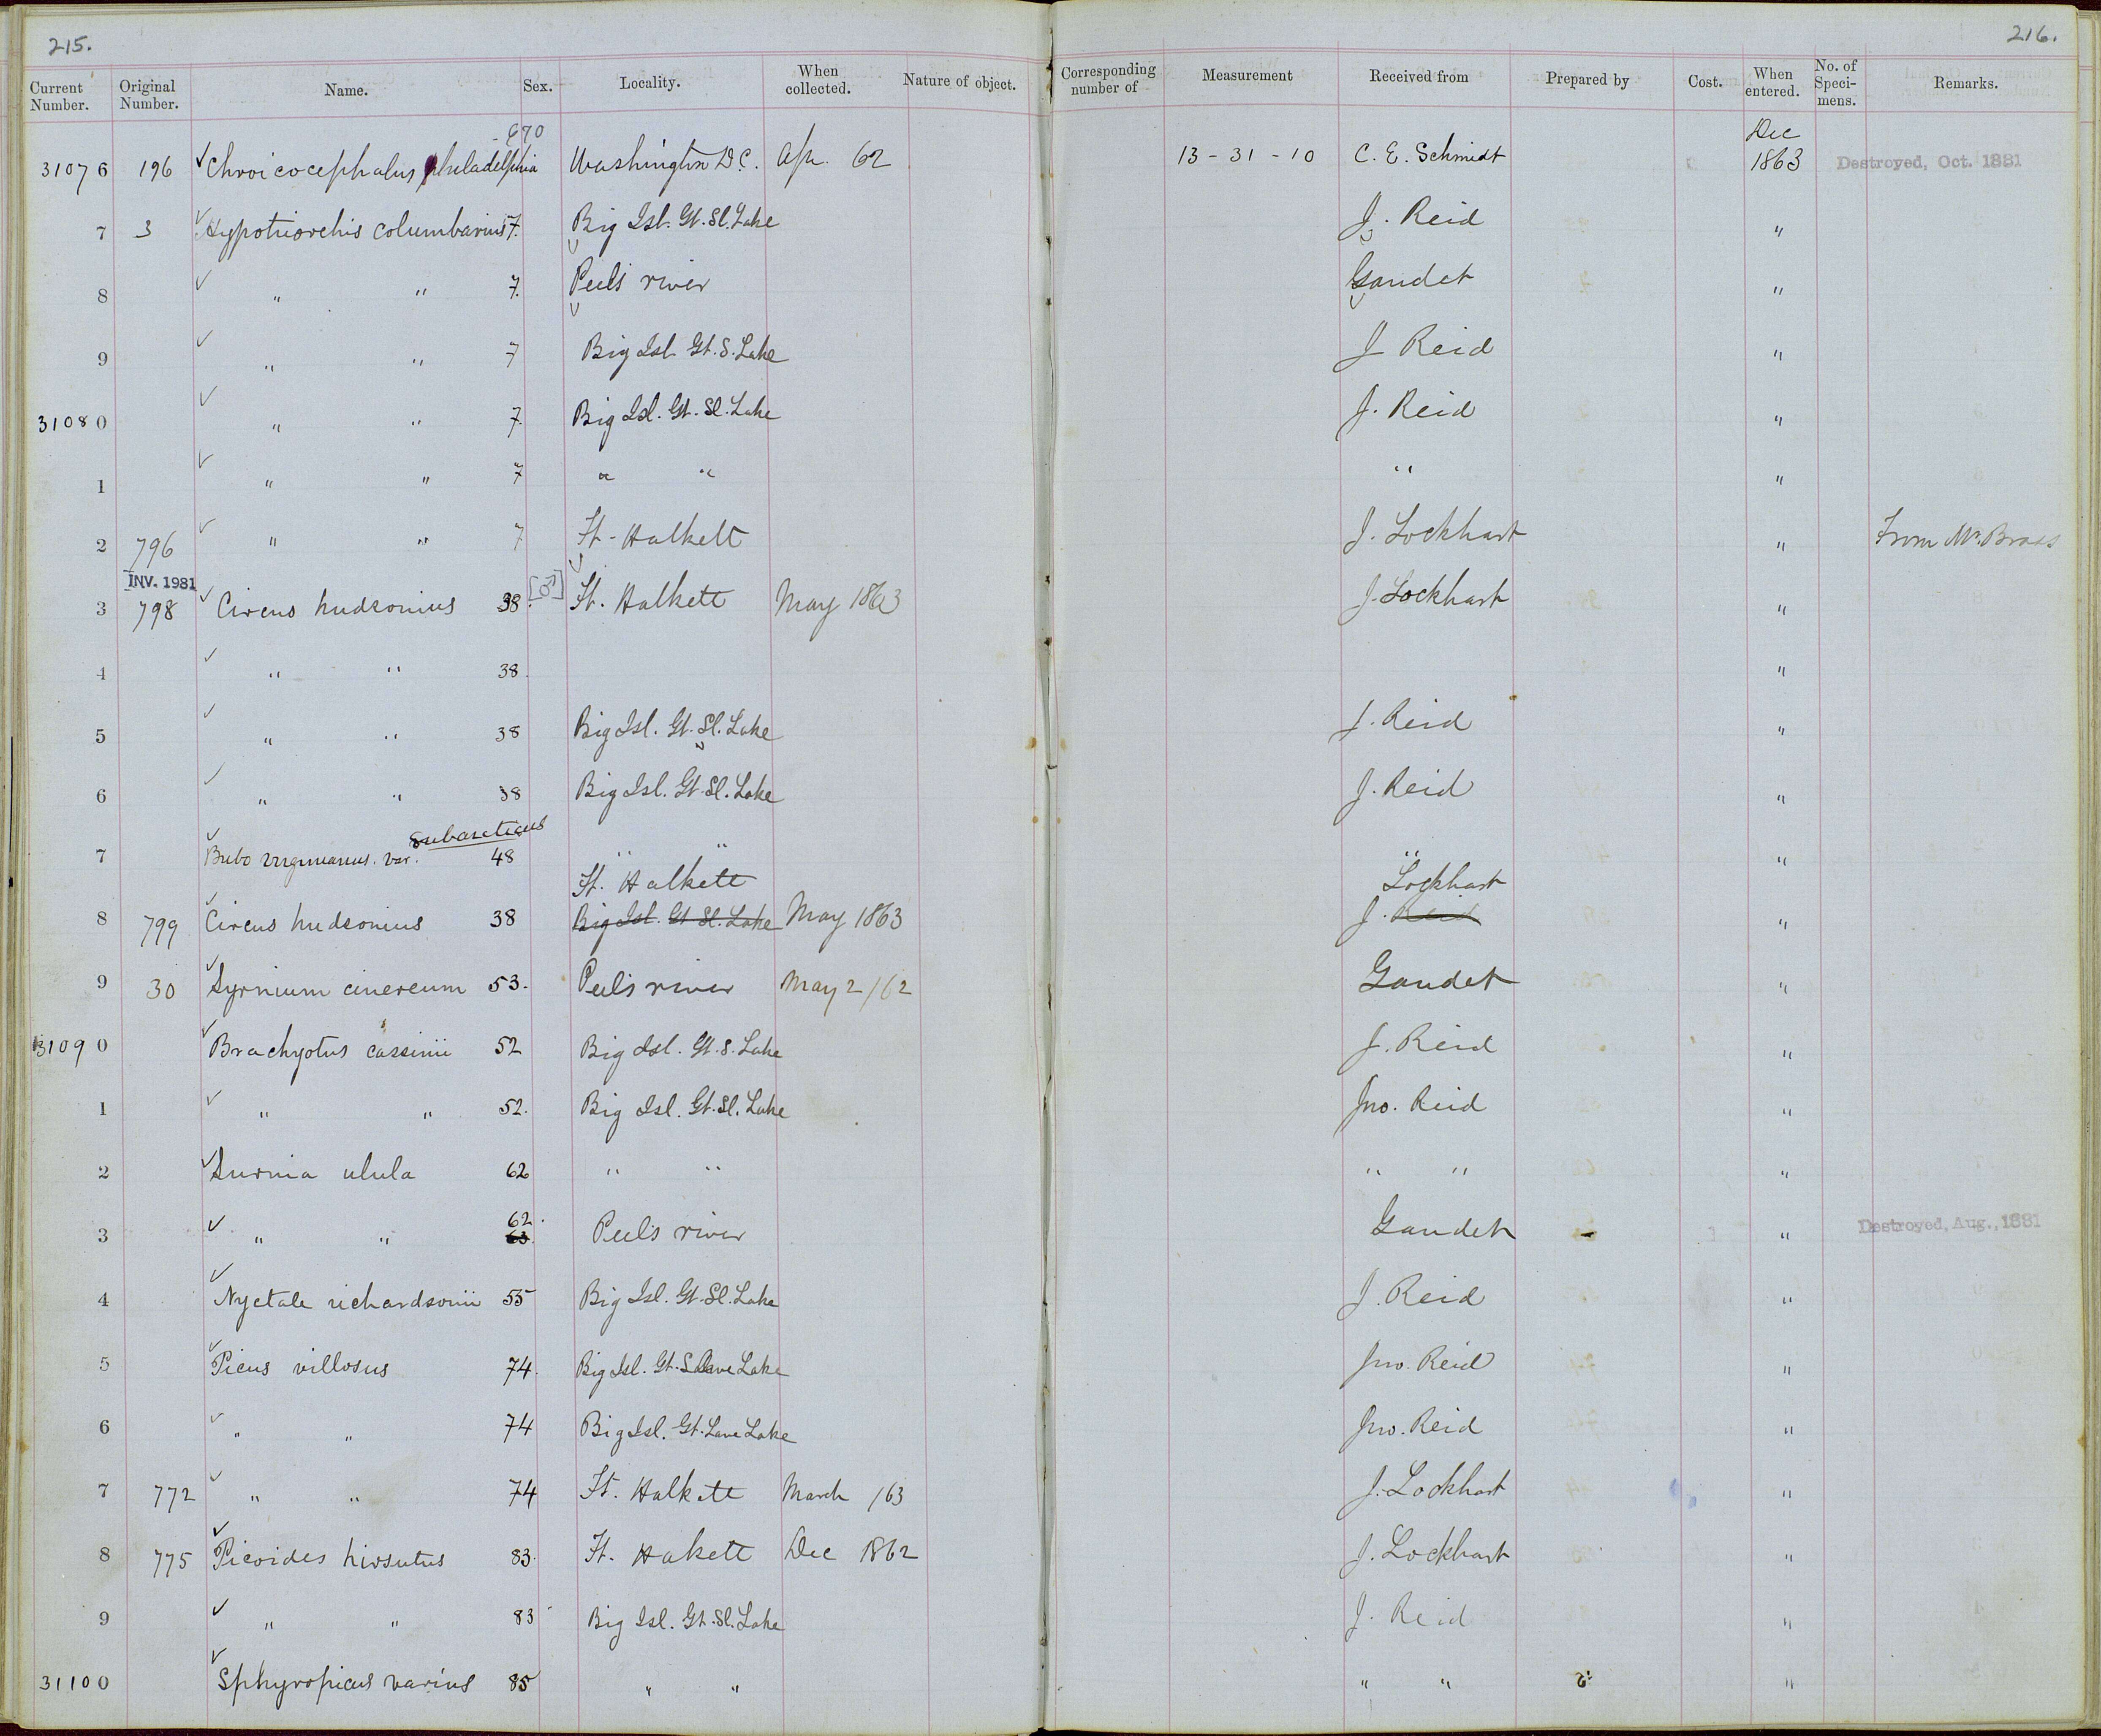 215.
216.
Current Number. Original Number. Name. Sex. Locality. When collected. Nature of object. Corresponding number of Measurement Received from Prepared by Cost. When entered. No. of Speci-mens. Remarks.
670 Dec
31076 196 ✓ Chroicocephalus philadelphia Washington D.C. Apr. 62 13-31-10 C. E. Schmidt 1863 Destroyed, Oct. 1881
7 3 ✓ Hypotriorchis columbarius 7. Big Isl. Gt. Sl. Lake J. Reid "
8 ✓ " " 7. Peels river Gaudet "
9 ✓ " " 7 Big Isl Gt. S. Lake J Reid "
31080 ✓ " " 7. Big Isl. Gt. Sl. Lake J. Reid "
1 ✓ " " 7 " " " "
2 796 ✓ " " 7 Ft. Halkett J. Lockhart " From Mr. Brass
INV. 1981
3 798 ✓ Circus hudsonius 38. [♂] Ft. Halkett May 1863 J. Lockhart "
4 ✓ " " 38. "
5 ✓ " " 38 Big Isl. Gt. Sl. Lake J. Reid "
6 ✓ " " 38 Big Isl. Gt. Sl. Lake J. Reid "
subarcticus
7 ✓ Bubo virginianus. var. 48 " " " "
Ft. Halkett Lockhart
8 799 ✓ Circus hudsonius 38 Big Isl. Gt Sl. Lake May 1863 J. Reid "
9 30 ✓ Syrnium cinereum 53. Peels river May 2/62 Gaudet "
31090 ✓ Brachyotus cassinii 52 Big Isl. Gt. S. Lake J. Reid "
1 ✓ " " 52. Big Isl. Gt. Sl. Lake Jno. Reid "
2 ✓ Surnia ulula 62 " " " " "
62.
3 ✓ " " 63. Peels river Gaudet "  Destroyed, Aug., 1881
4 ✓ Nyctale richardsonii 55 Big Isl. Gt. Sl. Lake J. Reid "
5 ✓ Picus villosus 74. Big Isl. Gt. Slave Lake Jno. Reid "
6 ✓ " " 74 Big Isl. Gt. Lave Lake Jno. Reid "
7 772 ✓ " " 74 Ft. Halkett March /63 J. Lockhart "
8 775 ✓ Picoides hirsutus 83. Ft. Hakett Dec 1862 J. Lockhart "
9 ✓ " " 83 Big Isl. Gt. Sl. Lake J. Reid "
31100 ✓ Sphyropicus varius 85 " " " " "